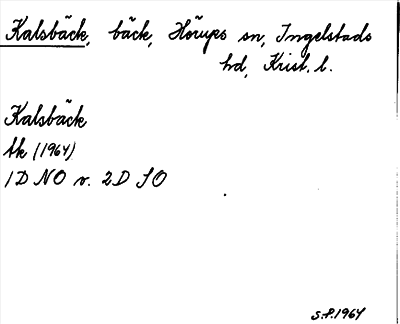 Kalsbäck, bäck, Hörups sn, Ingelstads
hd, Krist. l.
Kalsbäck
tk (1964)
1D NO v. 2D SO
S.P. 1964